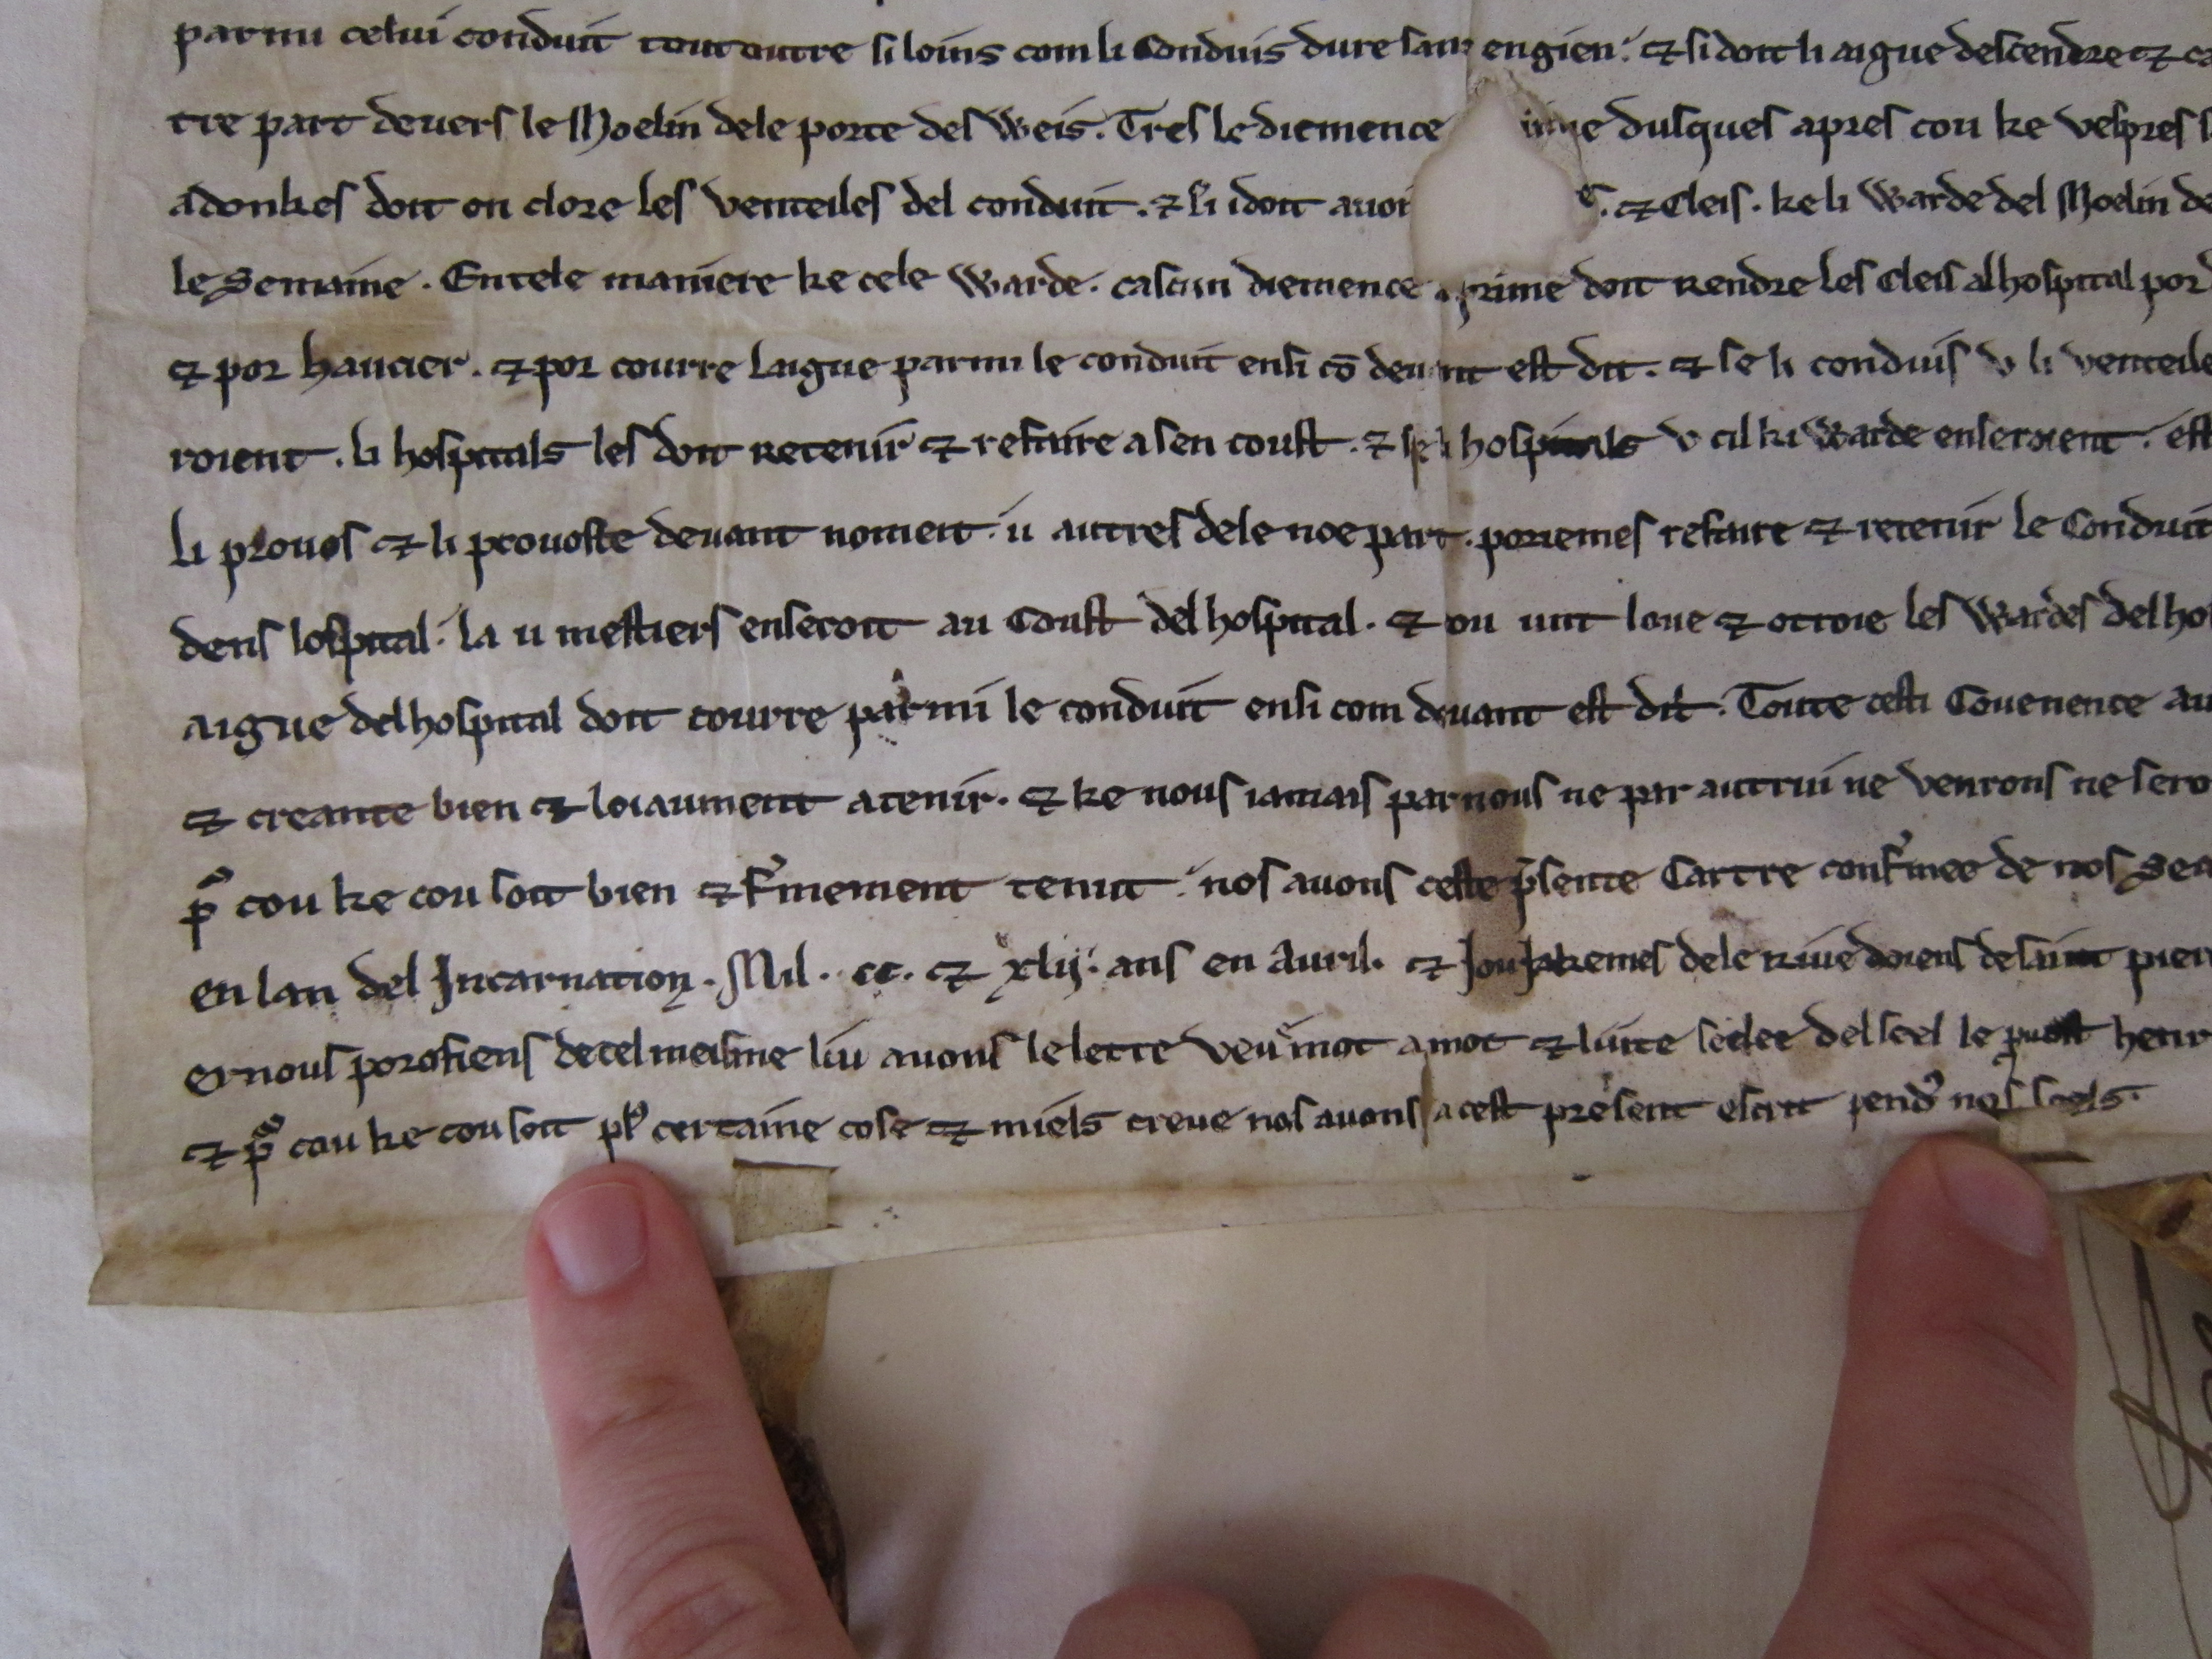 parmi celui conduit tout outre si loins com li Conduis dure sans engien. ⁊ si doit li aigue descendre ⁊
tre part deuers le Moelin dele porte des Weis. Tres le diemence dusques apres cou ke vespres
adonkes doit on clore les venteiles del conduit. ⁊ si i doit ⁊ Cleis. ke li Warde del Moelin
le Semaine. En tele maniere ke cele Warde. cascun diemence a prime doit rendre les Cleis al hospital por
⁊ por haucier. ⁊ por courre laigue parmi le conduit ensi cō deuant est dit. ⁊ se li conduis v li venteile
roient. li hospitals les doit retenir ⁊ refaire a sen coust. ⁊ se li hospitals v cil ki Warde en seroient.
li prouos ⁊ li prouoste deuant nomeit. u autres dele noe part. poriemes refaire ⁊ retenir le Conduit
dens lospital. la u mestiers en seroit au Coust del hospital. ⁊ ou unt loue ⁊ otroie les Wardes del
aigue del hospital doit courre parmi le conduit ensi com deuant est dit. Toute cesti Couenence
⁊ creante bien ⁊ loiaument a tenir. ⁊ ke nous iamais par nous ne par autrui ne venrons ne
pͣ cou ke cou soit bien ⁊ f'mement tenut. nos auons ceste p̄sente Cartre conf'mee de nos
en lan del Incarnation. Mil. cc. ⁊ xlij. ans en Auril. ⁊ Jou Jakemes dele riue doiens de saint
ernous porofiens de cel meisme liu auons le lettre veue mot a mot ⁊ liute seelee del seel le puost
⁊ pͣ cou ke cou soit pl' certaine cose ⁊ miels creue nos auons a cest present escrit pend' nos seels.